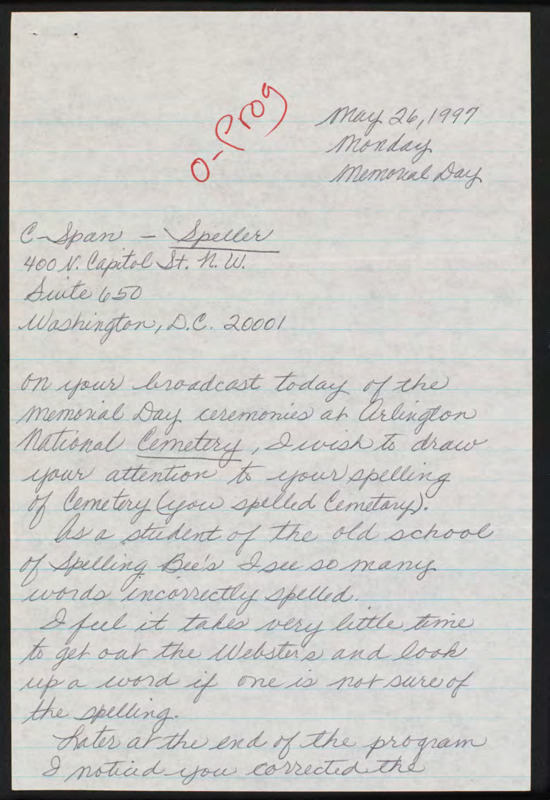 O-Prog
May 26, 1997
Monday
Memorial Day
C-Span - Speller
400 N. Capitol St. N.W.
Suite 650
Washington, D.C. 20001
On your broadcast today of the
Memorial Day ceremonies at Arlington
National Cemetery, I wish to draw
your attention to your spelling
of Cemetery (you spelled Cemetary).
As a student of the old school
of Spelling Bee's I see so many
words incorrectly spelled.
I feel it takes very little time
to get out the Webster's and look
up a word if one is not sure of
the spelling.
Later at the end of the program
I noticed you corrected the